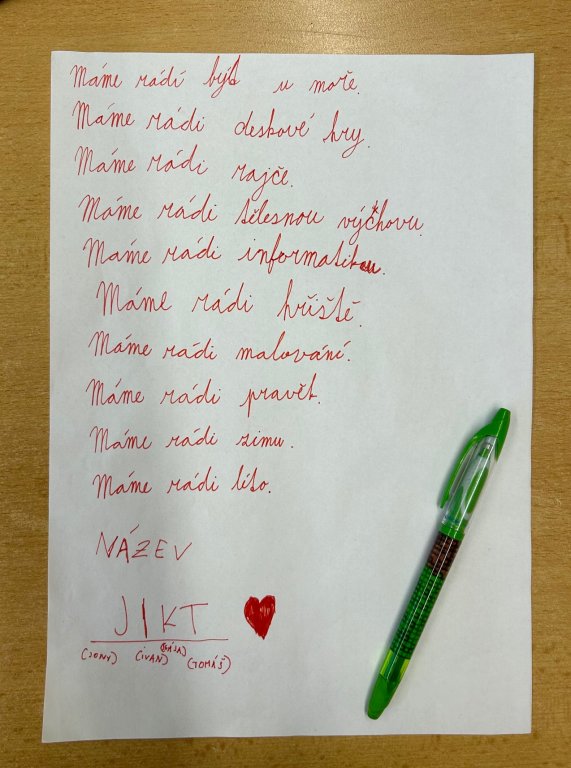 Máme rádi být u moře.
Máme rádi deskové hry.
Máme rádi rajče.
Máme rádi tělesnou výchovu.
Máme rádi informatiku.
Máme rádi hřiště.
Máme rádi malování.
Máme rádi pravět.
Máme rádi zimu.
Máme rádi léto.
NÁZEV
JIKT
(JONY) (IVAN) (KÁJA) (TOMÁŠ)